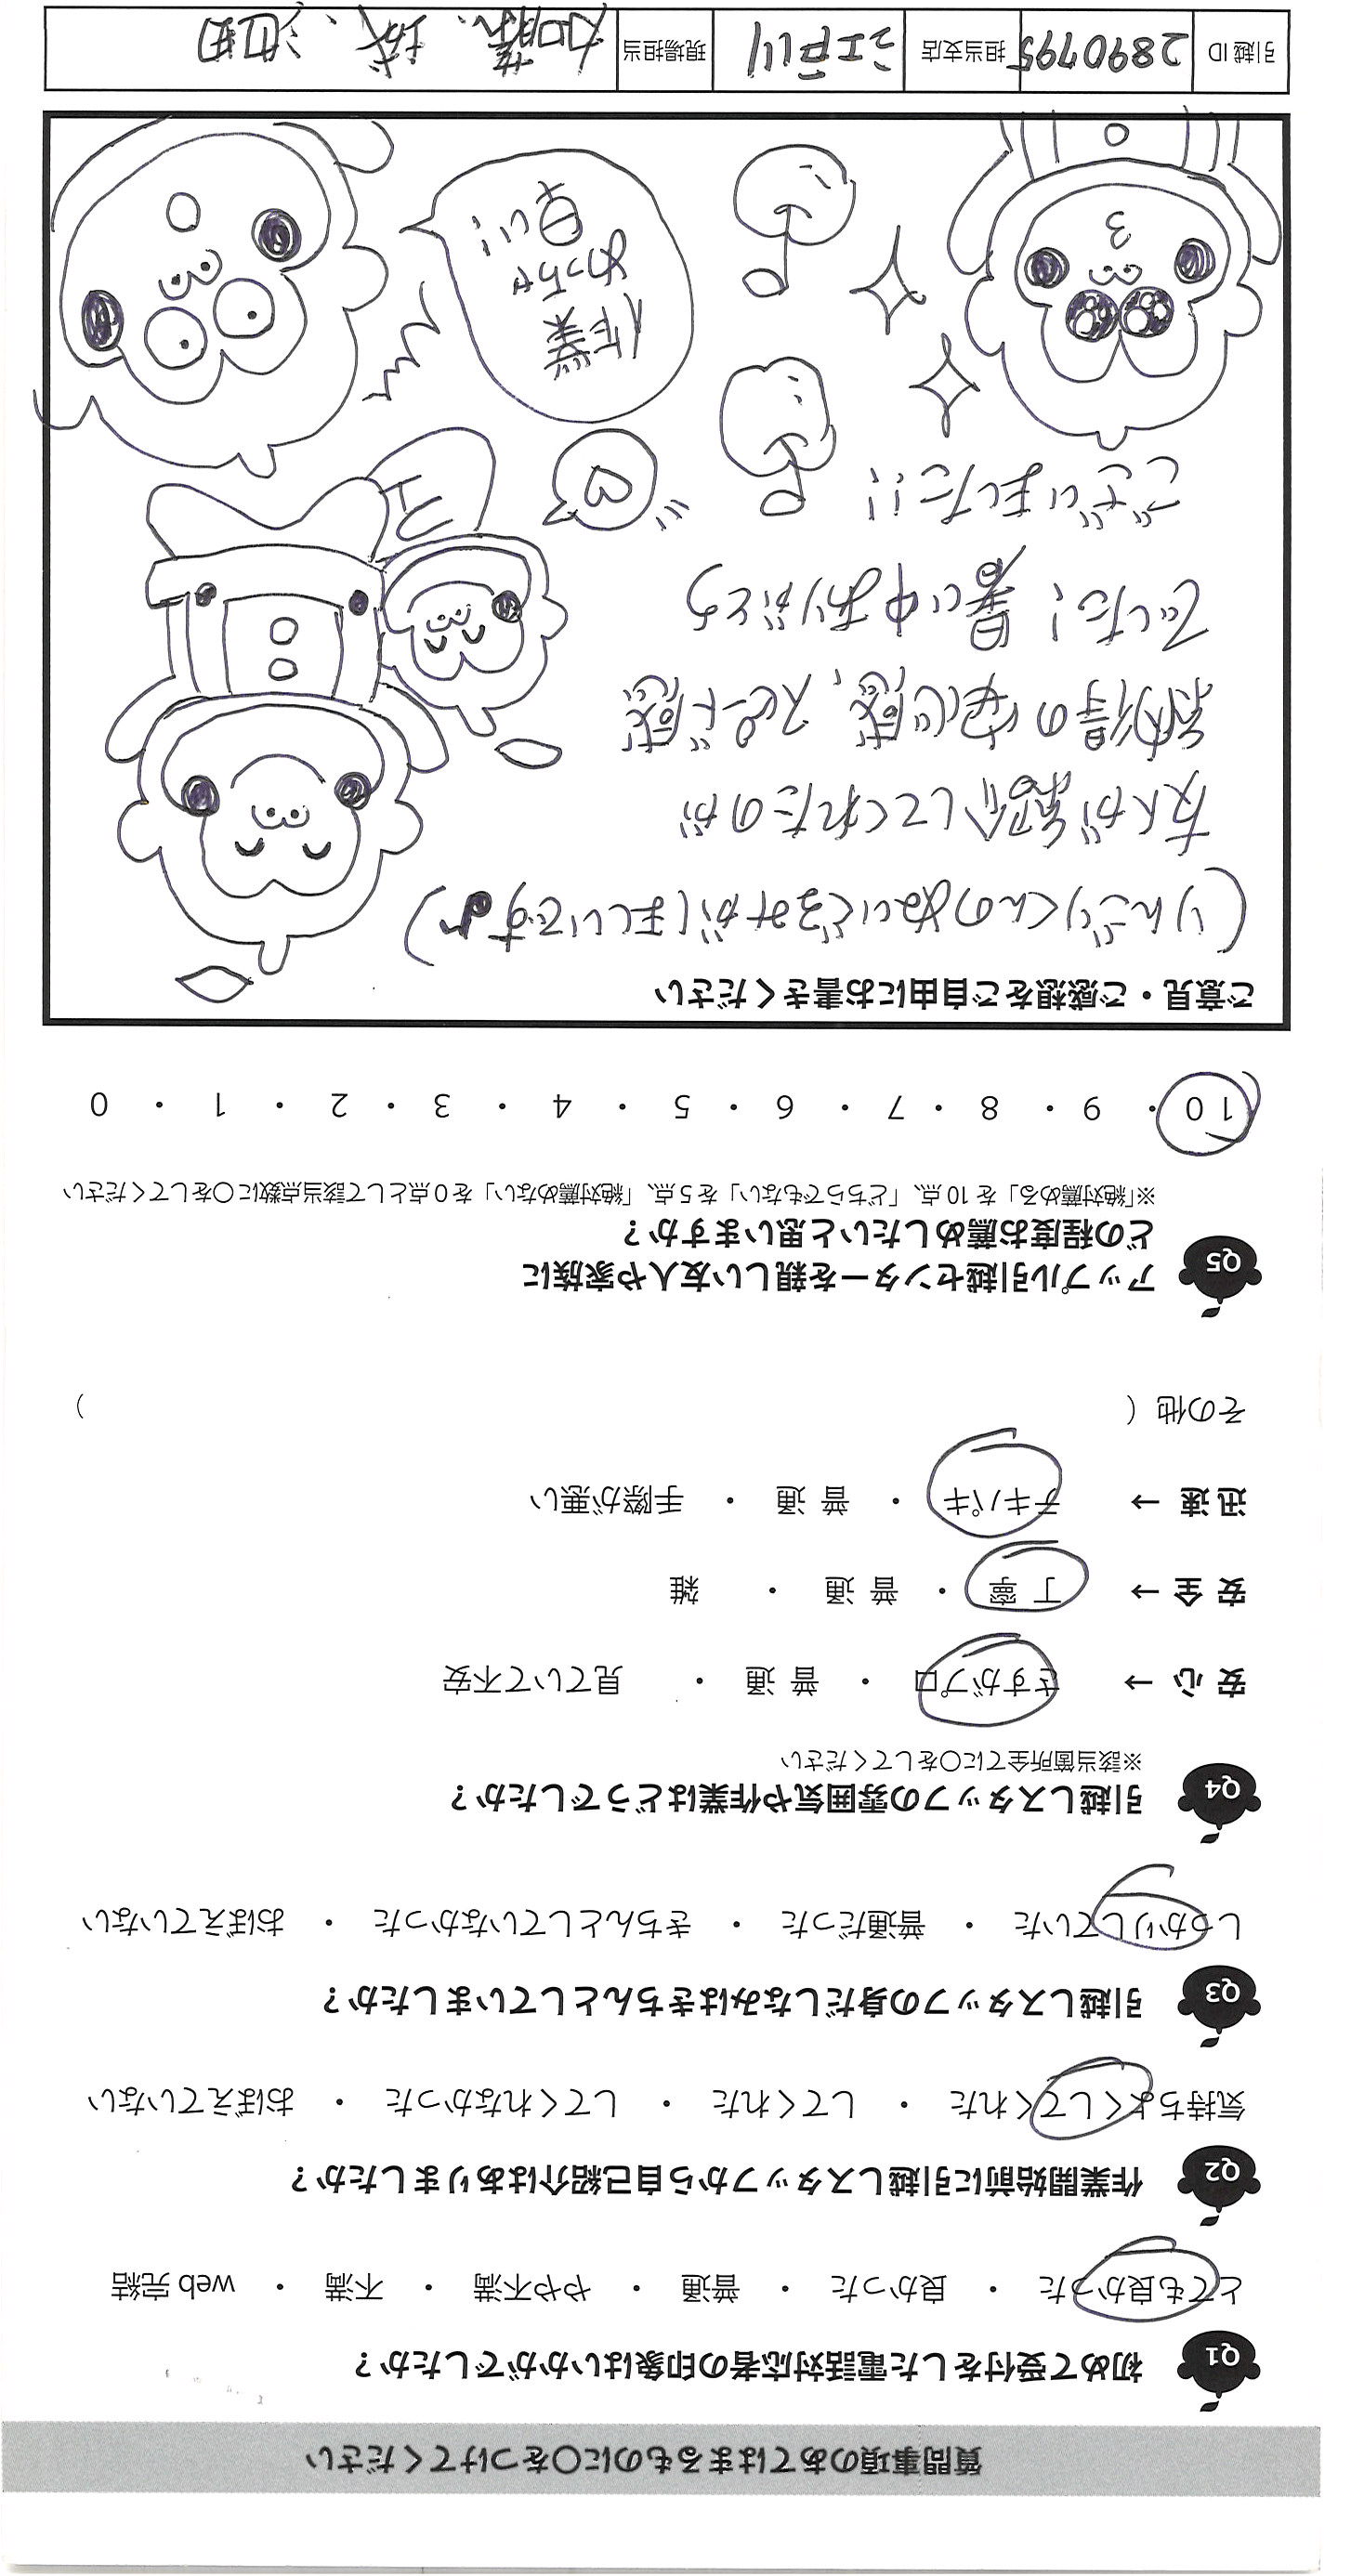 質問事項のあてはまるものに〇をつけてください
Q1 初めて受付をした電話対応者の印象はいかがでしたか？
とても良かった ・ 良かった ・ 普通 ・ やや不満 ・ 不満 ・ web 完結
Q2 作業開始前に引越しスタッフから自己紹介はありましたか？
気持ちよくしてくれた ・ してくれた ・ してくれなかった ・ おぼえていない
Q3 引越しスタッフの身だしなみはきちんとしていましたか？
しっかりしていた ・ 普通だった ・ きちんとしていなかった ・ おぼえていない
Q4 引越しスタッフの雰囲気や作業はどうでしたか？
※該当箇所全てに〇をしてください
安心 → さすがプロ ・ 普通 ・ 見ていて不安
安全 → 丁寧 ・ 普通 ・ 雑
迅速 → テキパキ ・ 普通 ・ 手際が悪い
その他 （ ）
Q5 アップル引越センターを親しい友人や家族に
どの程度お薦めしたいと思いますか？
※「絶対薦める」を 10 点、「どちらでもない」を 5 点、「絶対薦めない」を 0 点として該当点数に〇をしてください
10 ・ 9 ・ 8 ・ 7 ・ 6 ・ 5 ・ 4 ・ 3 ・ 2 ・ 1 ・ 0
ご意見・ご感想をご自由にお書きください
(りんごりくんのぬいぐるみがほしいです♪)
友人が紹介してくれたのが
納得の安心感、スピード感
でした！暑い中ありがとう
ございました!!
作業
めっちゃ
早い!
引越 ID 2890795 担当支店 江戸川 現場担当 加藤、城、池田